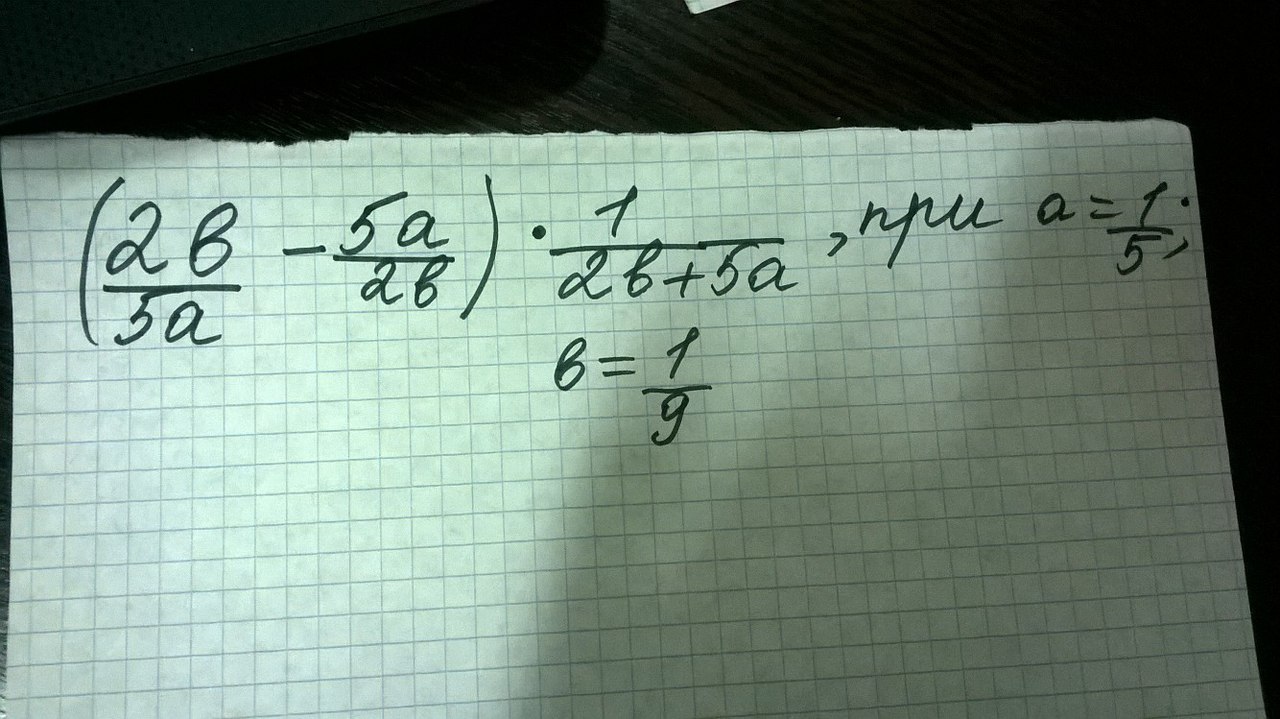 (2в/5а - 5а/2в) · 1/(2в+5а), при а = 1/5;
в = 1/9